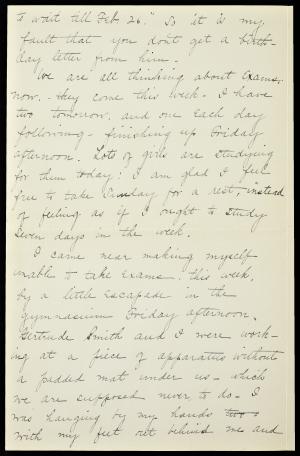 to wait till Feb. 26." So it is my
fault that you don't get a birth-
day letter from him.
We are all thinking about exams,
now. - They come this week. I have
two tomorrow, and one each day
following - finishing up Friday
afternoon. Lots of girls are studying
for them today; I am glad I feel
free to take Sunday for a rest, instead
of feeling as if I ought to study
seven days in the week.
I came near making myself
unable to take exams. this week,
by a little escapade in the
gymnasium Friday afternoon.
Gertrude Smith and I were work-
ing at a piece of apparatus without
a padded mat under us - which
we are supposed never to do. I
was hanging by my hands
with my feet out behind me and